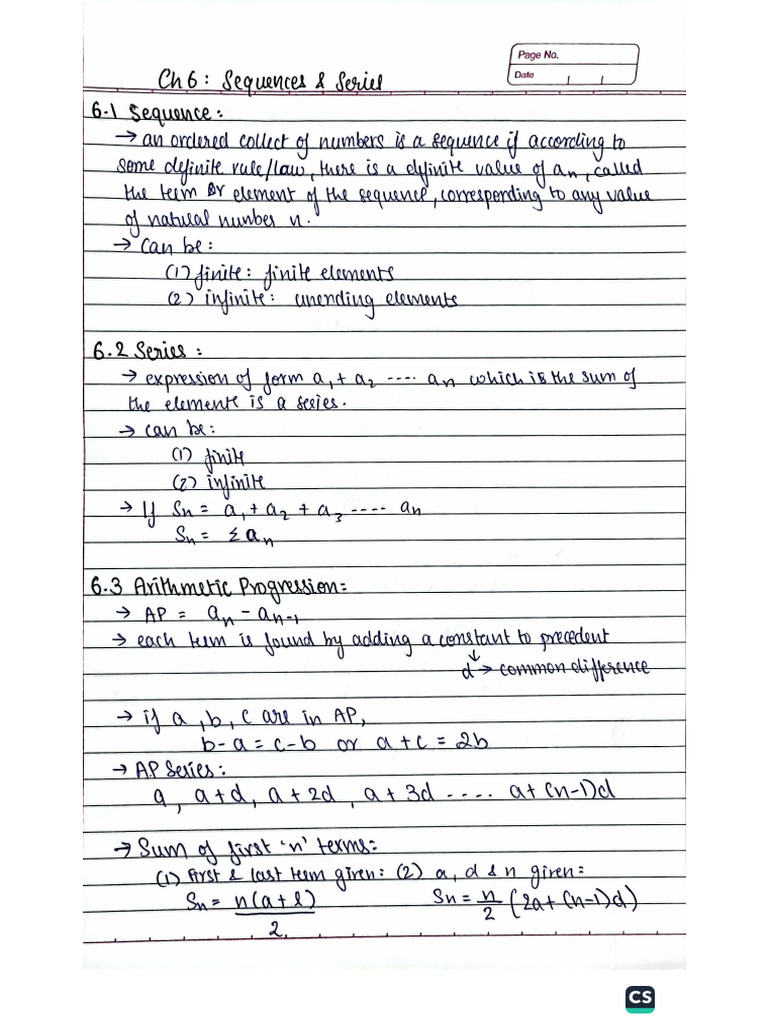 Page No.
Date
Ch 6 : Sequences & Series
6.1 Sequence :
→ an ordered collect of numbers is a sequence if according to
some definite rule/law, there is a definite value of aₙ, called
the term or element of the sequence, corresponding to any value
of natural number n.
→ Can be :
(1) finite : finite elements
(2) infinite : unending elements
6.2 Series :
→ expression of form a₁ + a₂ ---- aₙ which is the sum of
the elements is a series.
→ can be :
(1) finite
(2) infinite
→ If Sₙ = a₁ + a₂ + a₃ ---- aₙ
Sₙ = Σaₙ
6.3 Arithmetic Progression :
→ AP = aₙ - aₙ₋₁
→ each term is found by adding a constant to precedent
↓
d → common difference
→ if a, b, c are in AP,
b - a = c - b or a + c = 2b
→ AP Series :
a, a + d, a + 2d, a + 3d ---- a + (n-1)d
→ Sum of first 'n' terms :
(1) First & last term given : (2) a, d & n given :
Sₙ = n(a + l)/2 Sₙ = n/2 (2a + (n-1)d)
CS